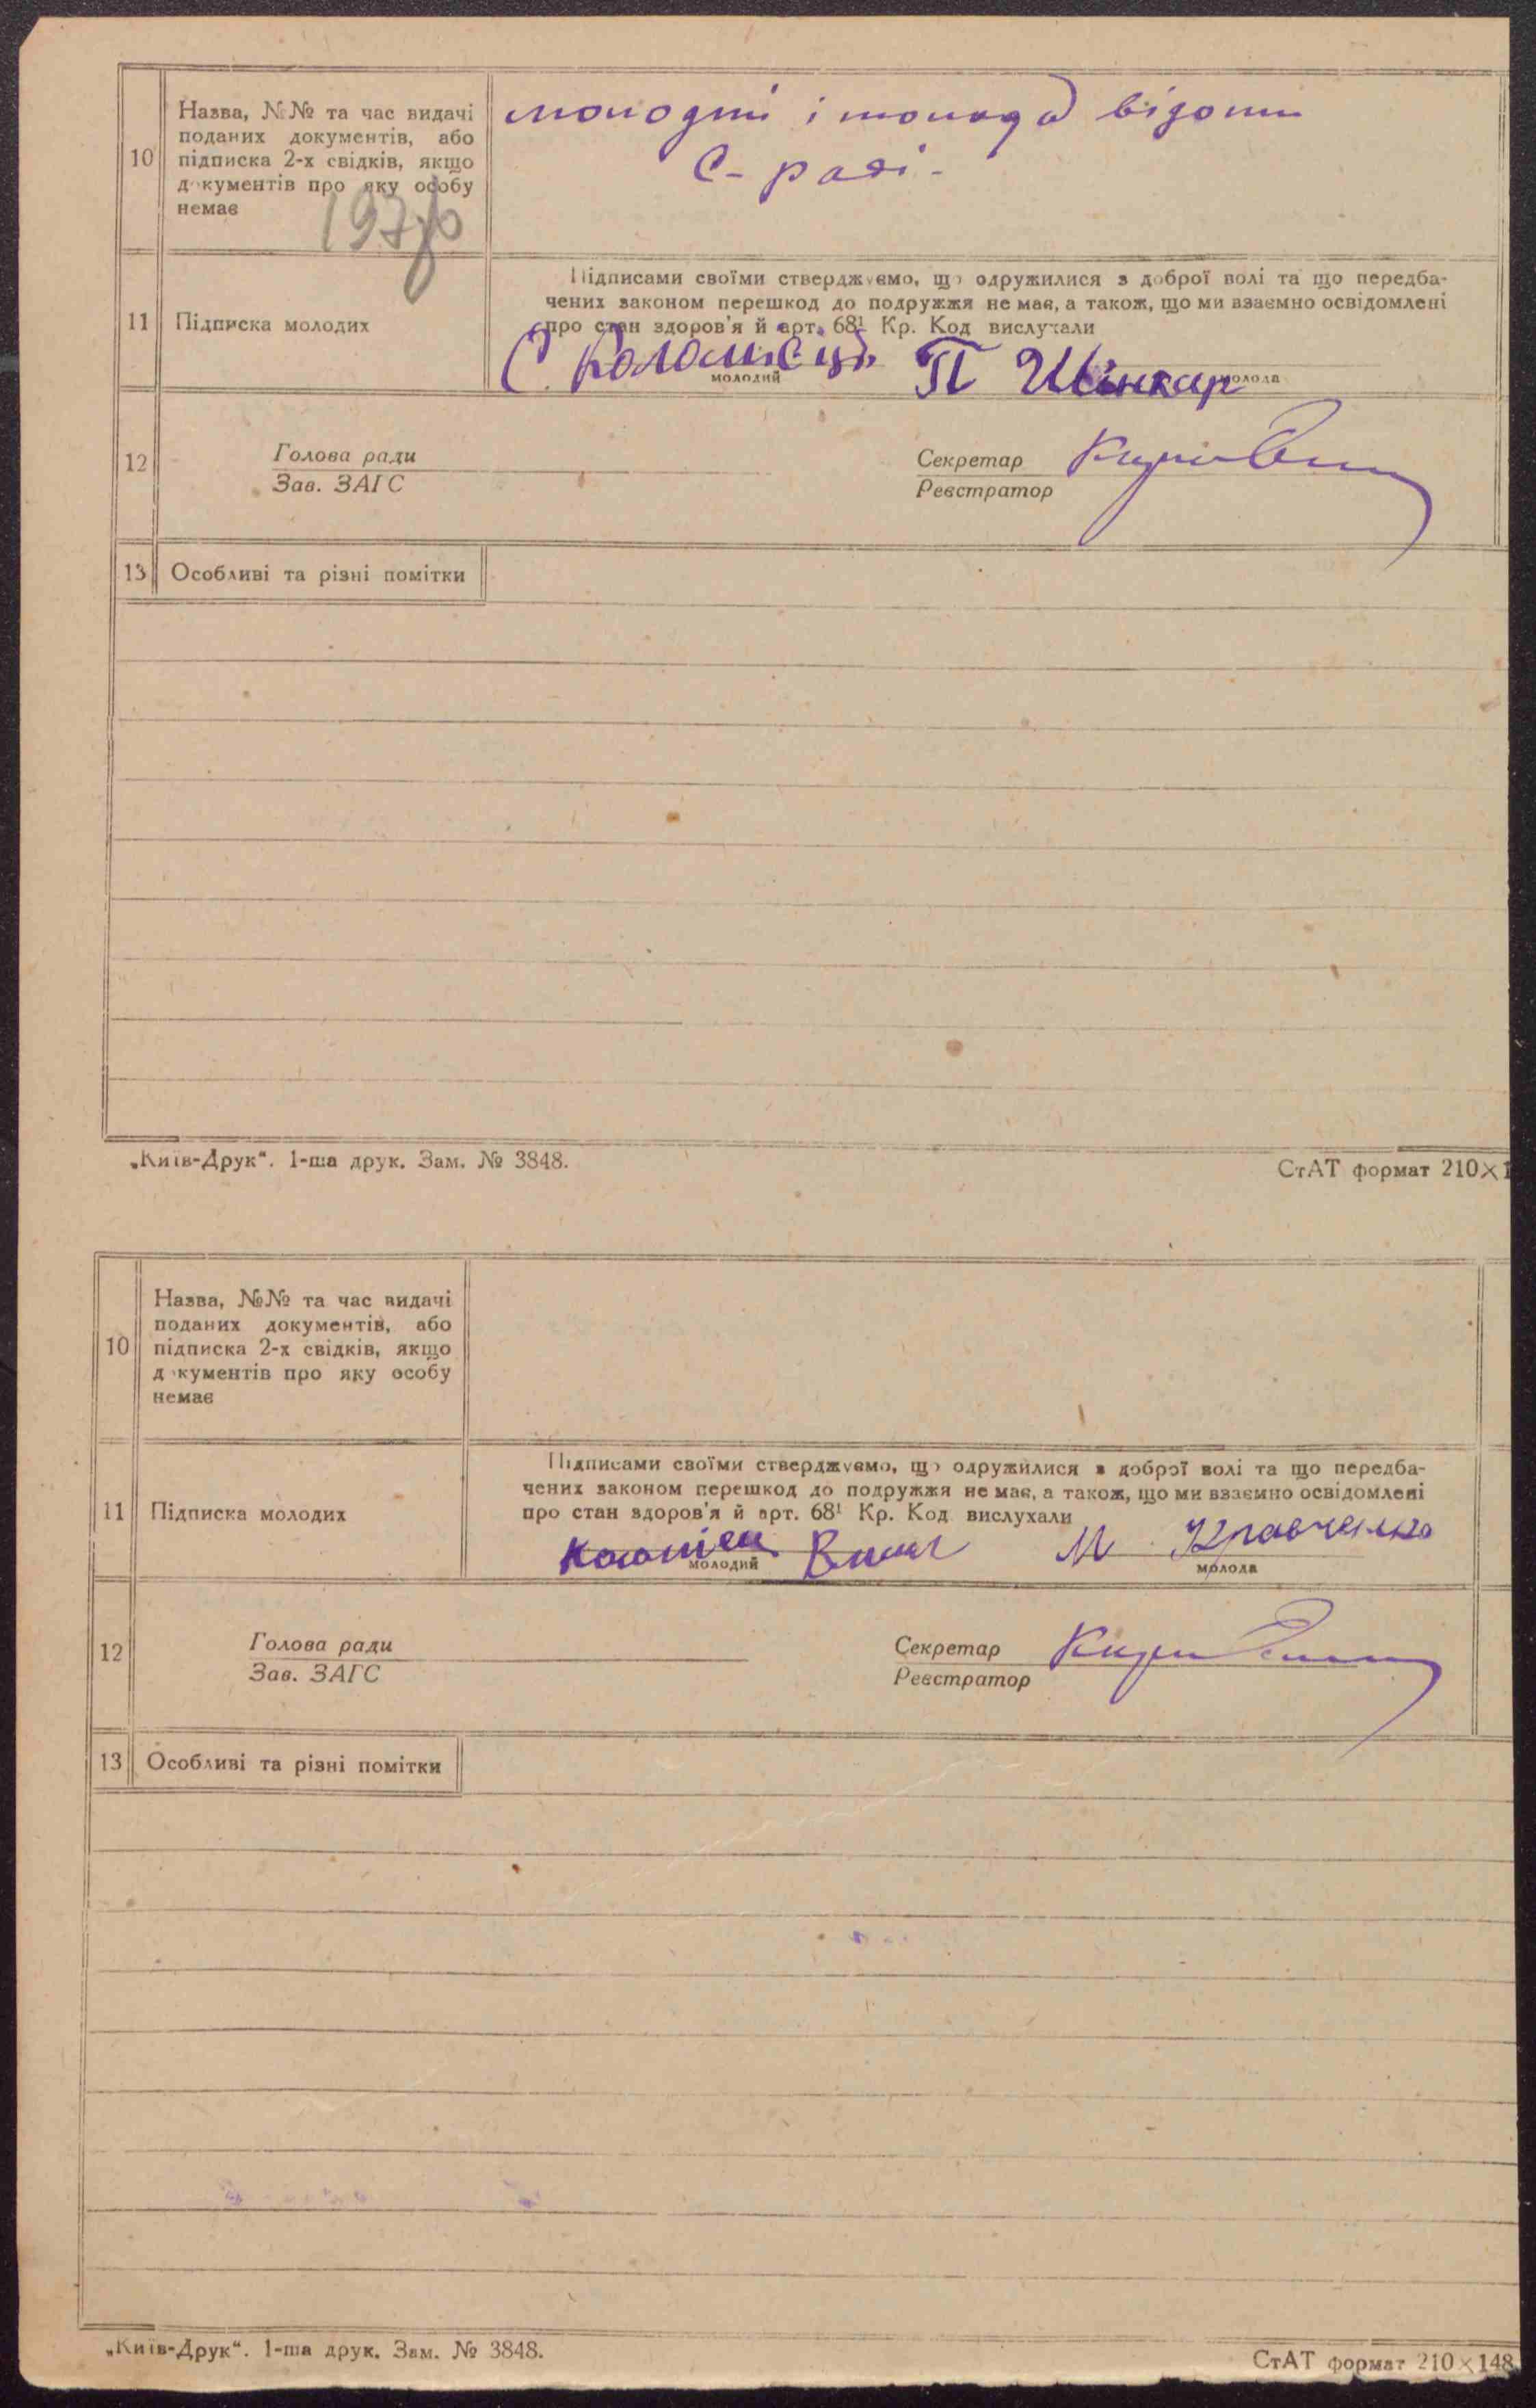 10
Назва, №№ та час видачі
поданих документів, або
підписка 2-х свідків, якщо
документів про яку особу
немає
молодий і молода відомі
С-раді.
11
Підписка молодих
Підписами своїми стверджуємо, що одружилися з доброї волі та що передба-
чених законом перешкод до подружжя не має, а також, що ми взаємно освідомлені
про стан здоров'я й арт. 68¹ Кр. Код вислухали
С. Коломієць П Шінкар
молодий молода
12
Голова ради
Зав. ЗАГС
Секретар
Реєстратор
13 Особливі та різні помітки
„Київ-Друк“. 1-ша друк. Зам. № 3848.
СтАТ формат 210×1
10
Назва, №№ та час видачі
поданих документів, або
підписка 2-х свідків, якщо
документів про яку особу
немає
11
Підписка молодих
Підписами своїми стверджуємо, що одружилися з доброї волі та що передба-
чених законом перешкод до подружжя не має, а також, що ми взаємно освідомлені
про стан здоров'я й арт. 68¹ Кр. Код вислухали
М Кравченко
молодий молода
12
Голова ради
Зав. ЗАГС
Секретар
Реєстратор
13 Особливі та різні помітки
„Київ-Друк“. 1-ша друк. Зам. № 3848.
СтАТ формат 210×148